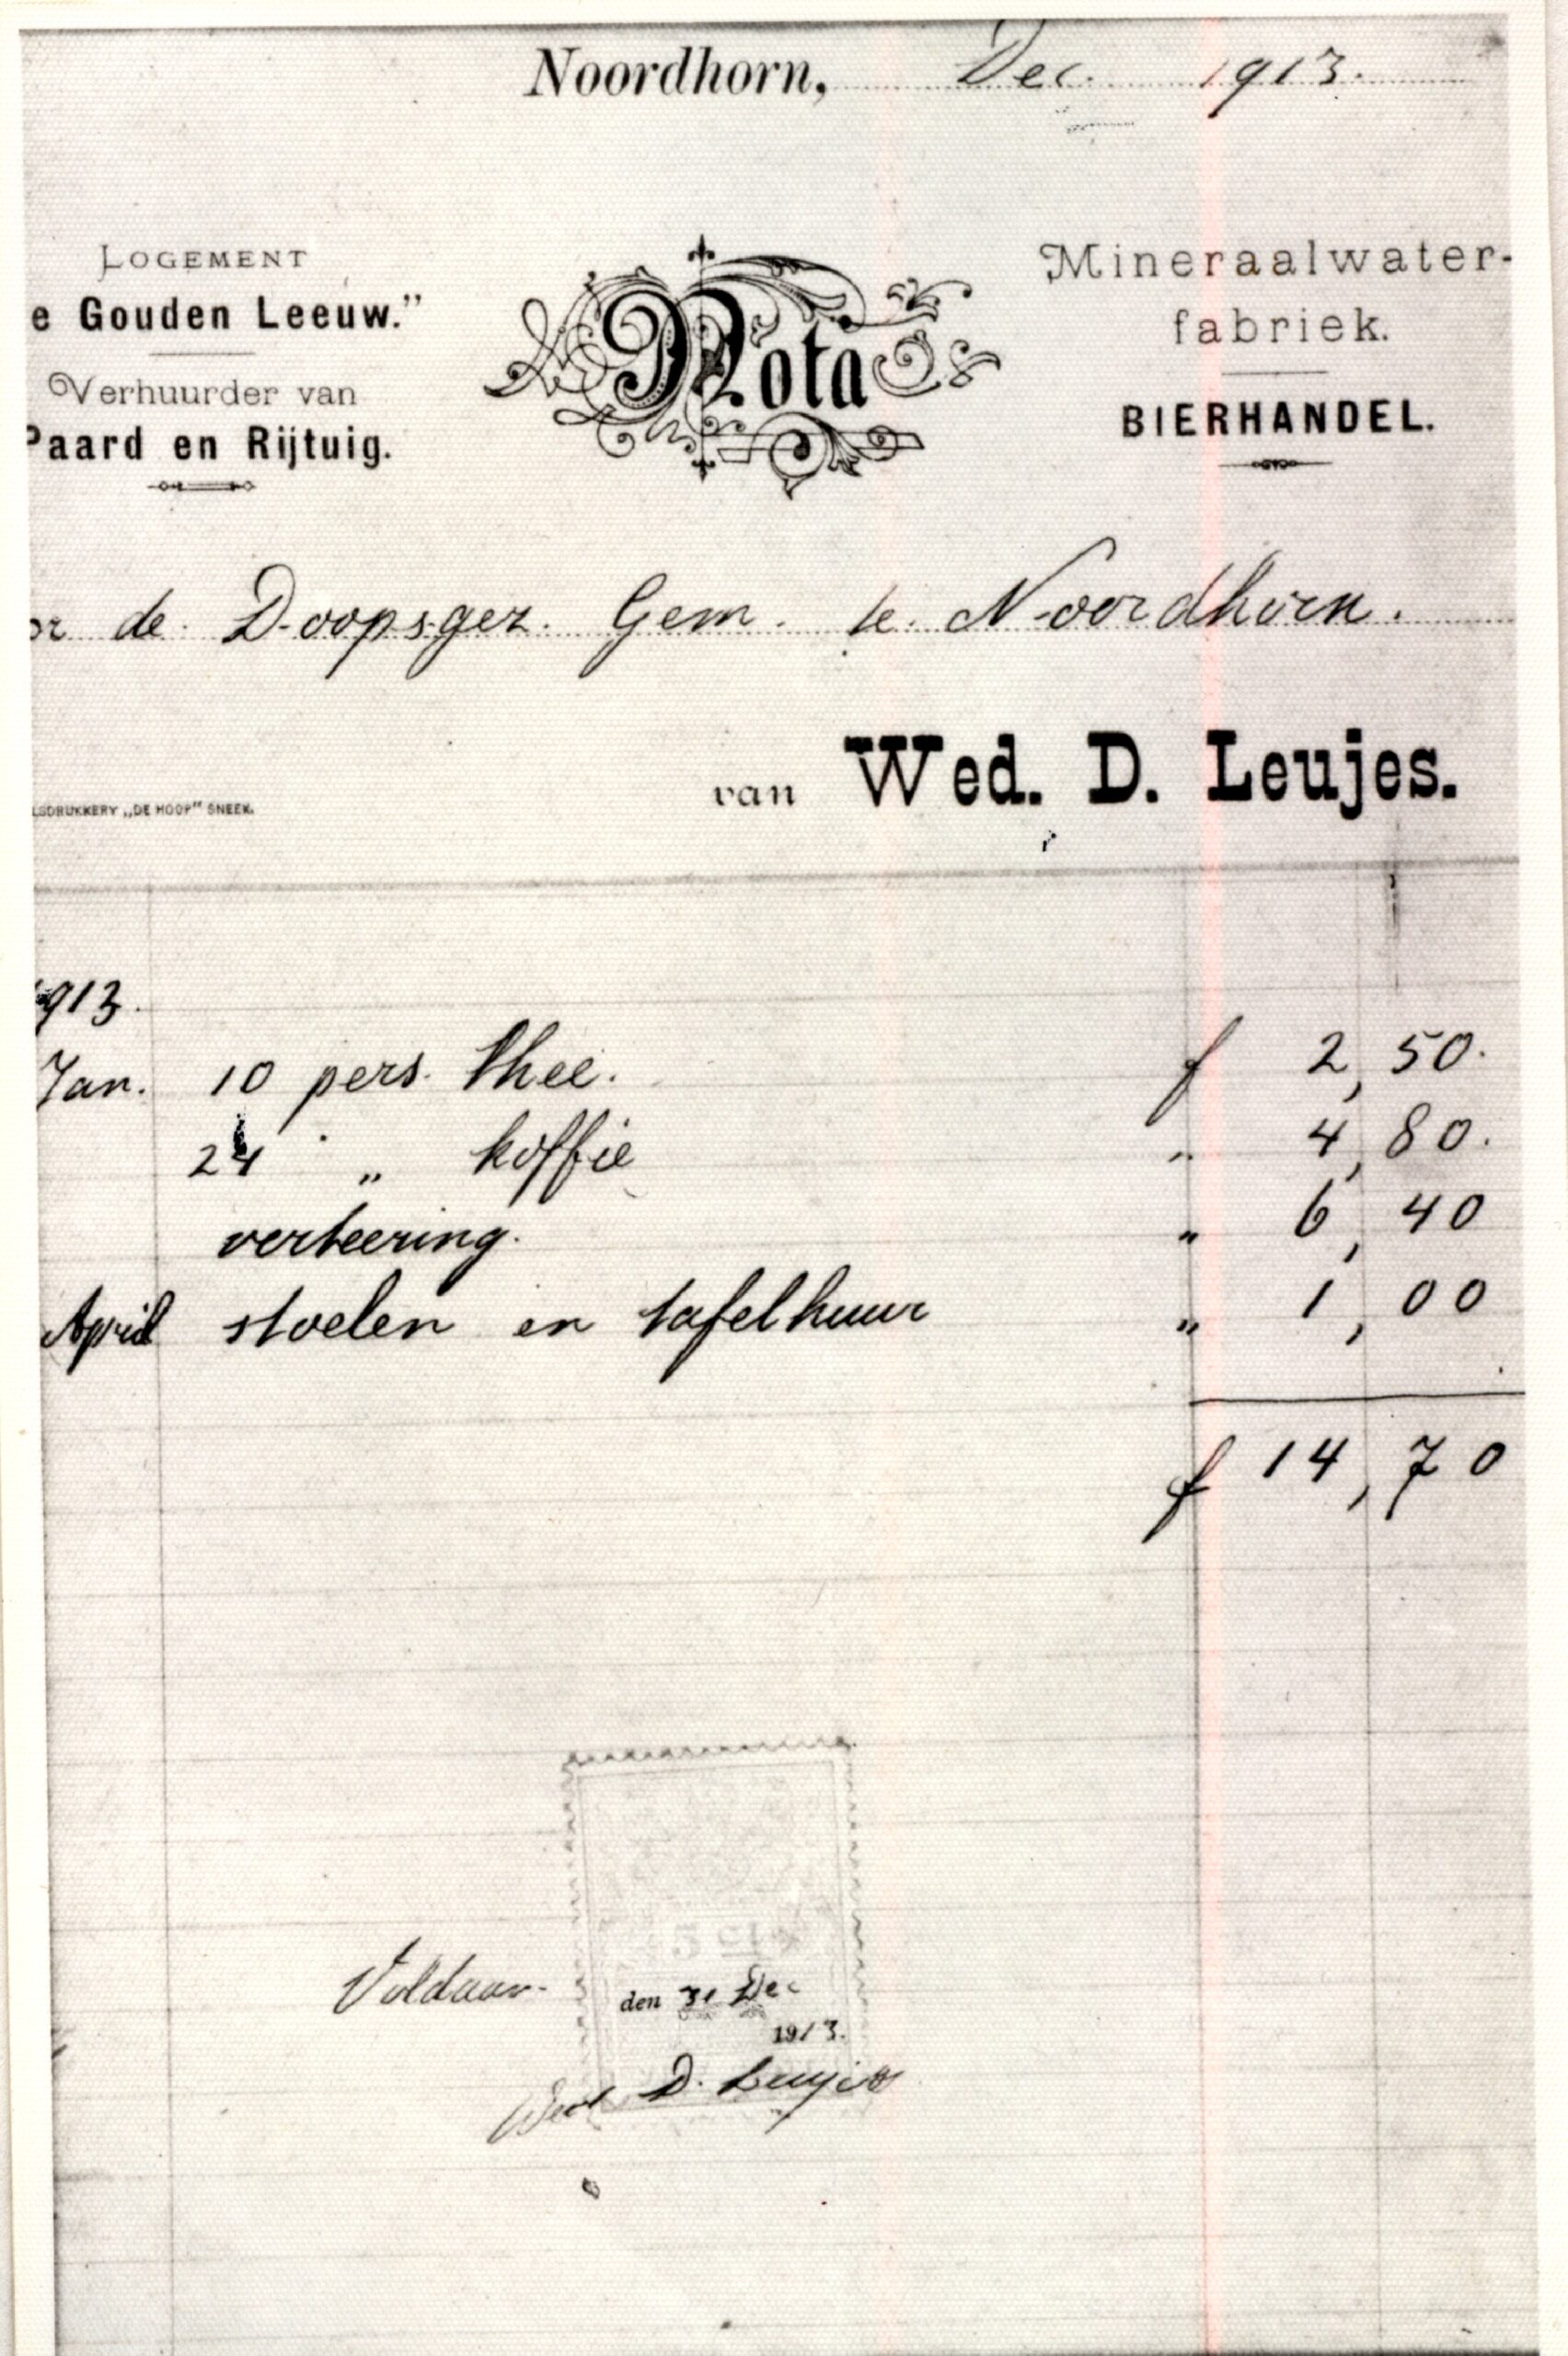 Noordhorn, Dec. 1913.
LOGEMENT
e Gouden Leeuw."
Verhuurder van
Paard en Rijtuig.
Nota
Mineraalwater-
fabriek.
BIERHANDEL.
or de Doopsgez. Gem. te Noordhorn.
van Wed. D. Leujes.
LSDRUKKERY „DE HOOP" SNEEK.
1913.
Jan. 10 pers. thee. f 2,50.
24 „ koffie „ 4,80.
verteering. „ 6,40
April stoelen en tafelhuur „ 1,00
f 14,70
Voldaan
den 31 Dec
1913.
Wed D. Leujes